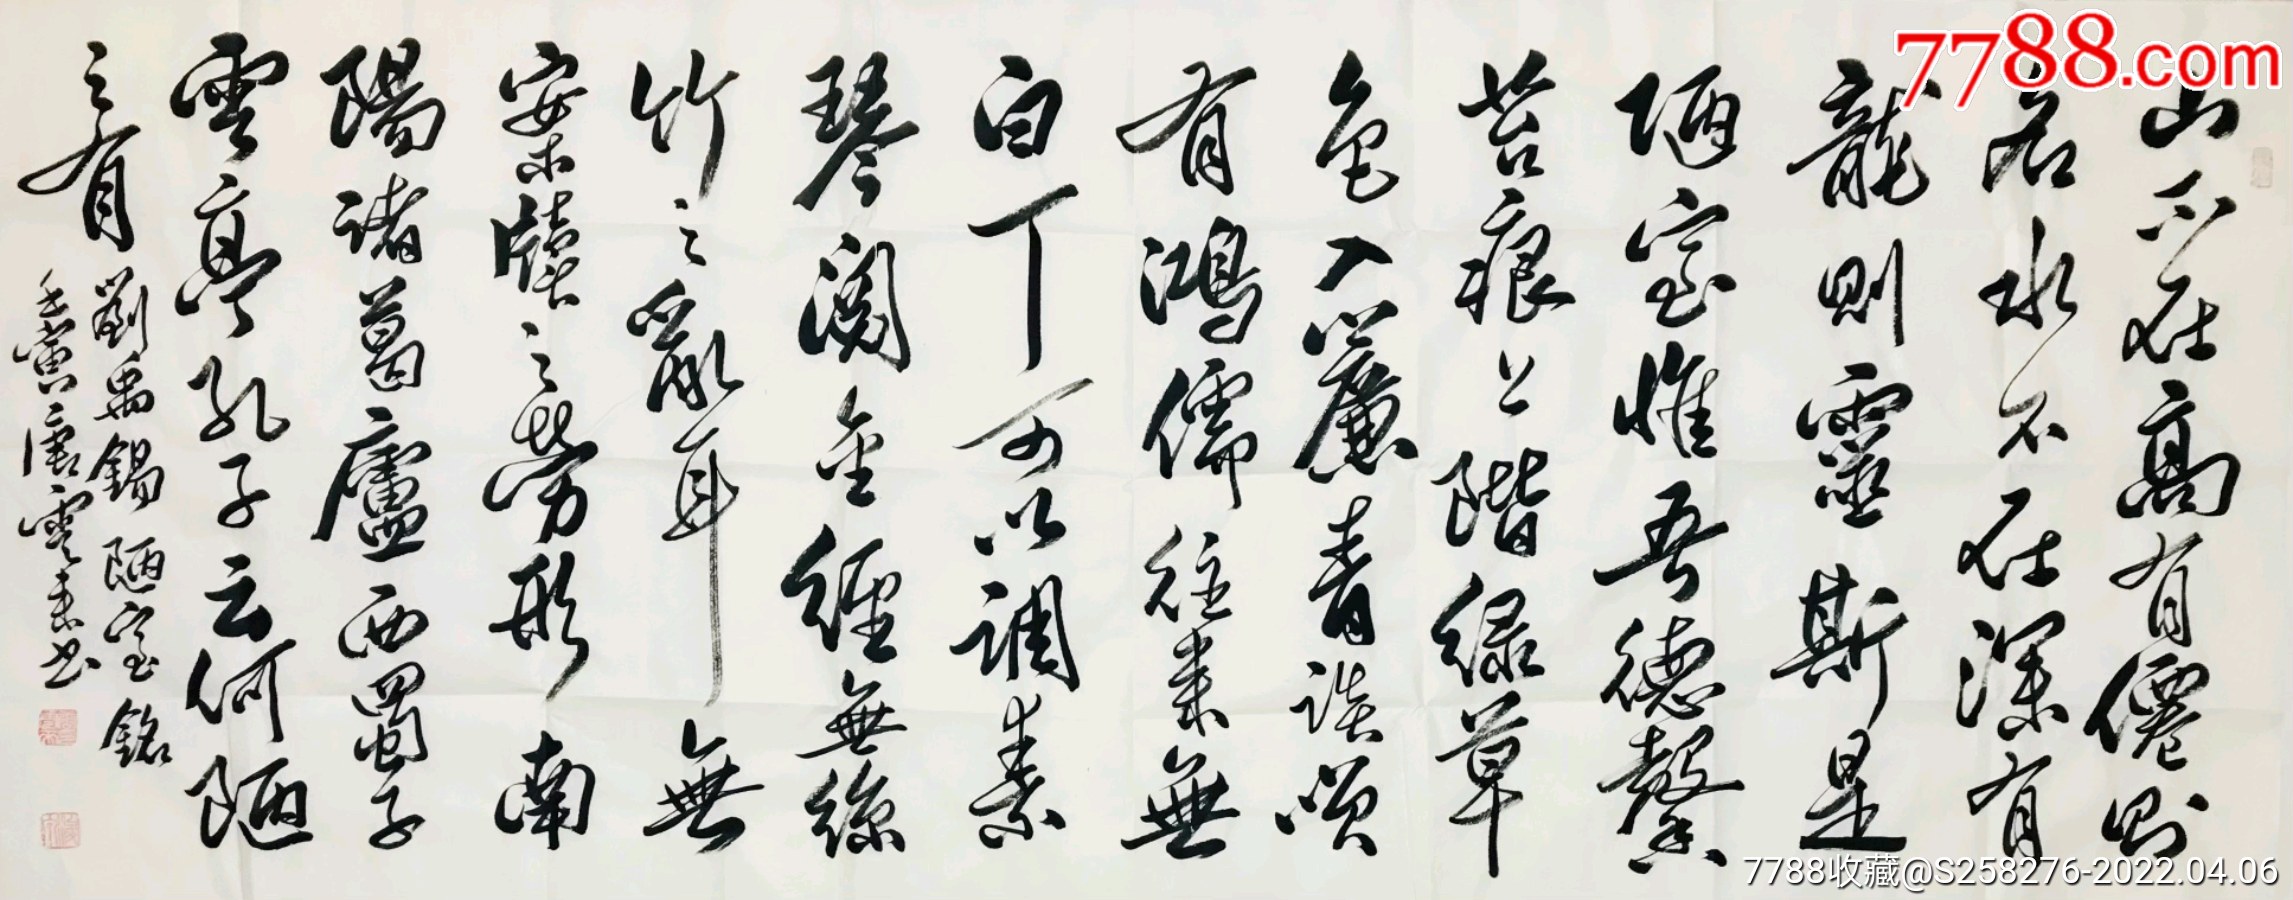 山不在高有僊則
名水不在深有
龍則靈斯是
陋室惟吾德馨
苔痕上階緑草
色入簾青談笑
有鴻儒往来無
白丁可以調素
琴閲金經無絲
竹之亂耳無
案牘之勞形南
陽諸葛廬西蜀子
雲亭孔子云何陋
之有
劉禹錫陋室銘
壬寅唐雲来书
7788.com
7788收藏@S258276-2022.04.06